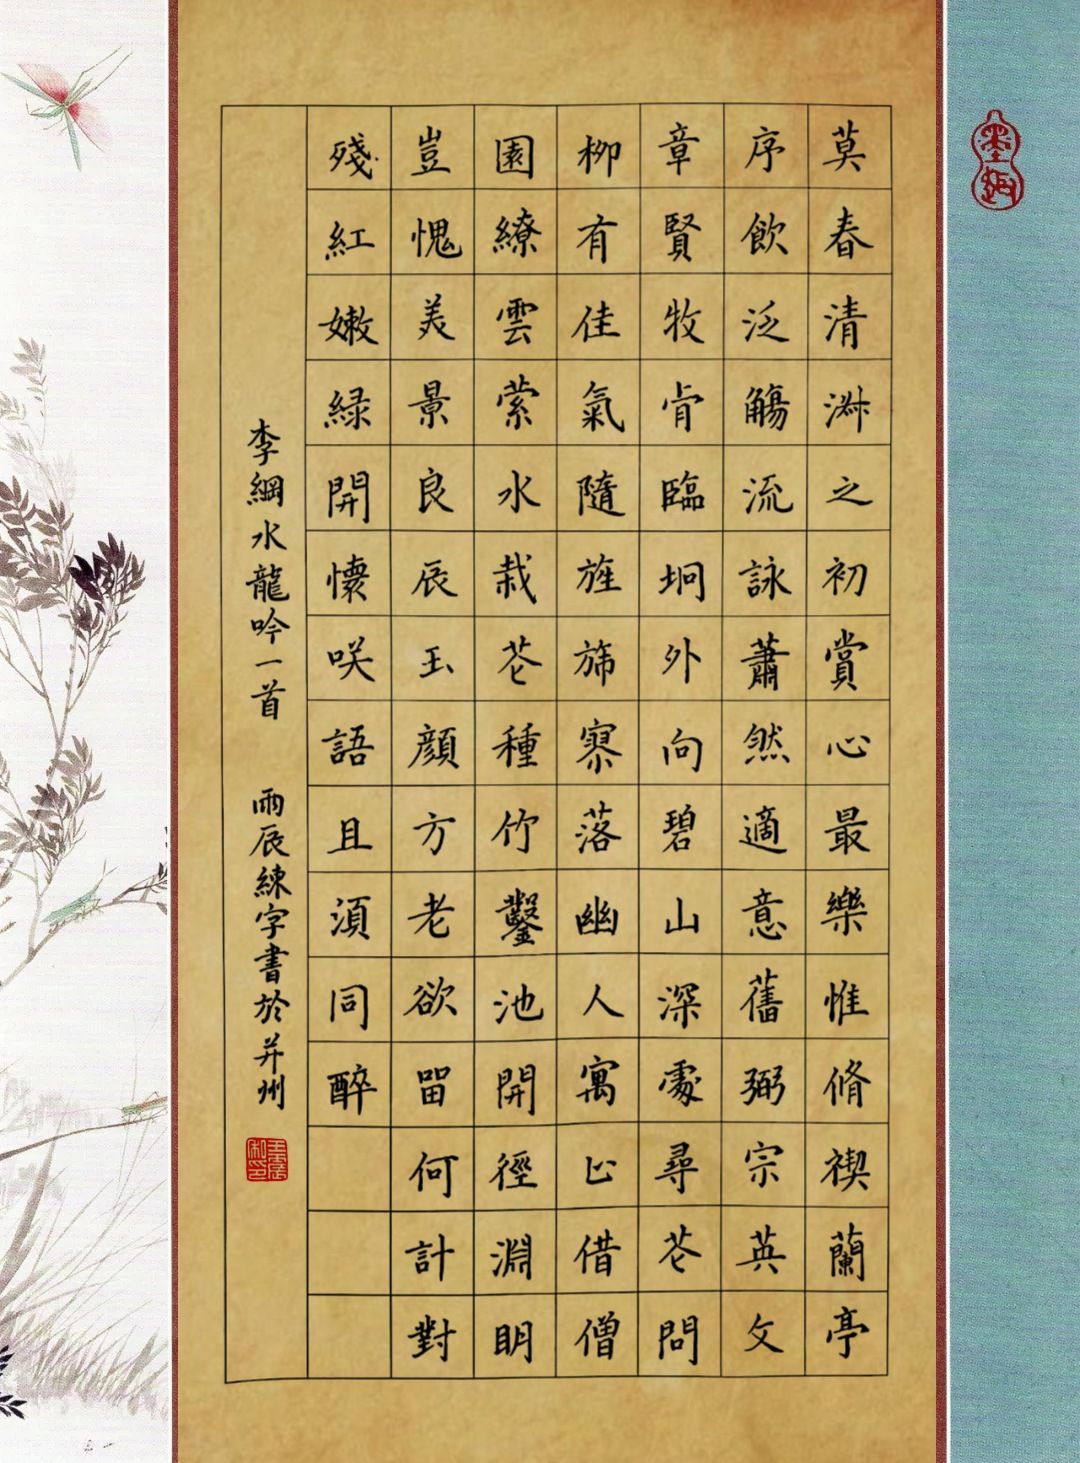 墨趣
莫春清淑之初賞心最樂惟脩禊蘭亭
序飲泛觴流詠蕭然適意舊弼宗英文
章賢牧肯臨坰外向碧山深處尋花問
柳有佳氣隨旌旆寥落幽人寓止借僧
園繚雲縈水栽花種竹鑿池開徑淵明
豈愧美景良辰玉顏方老欲留何計對
殘紅嫩緑開懷咲語且須同醉
李綱水龍吟一首 雨辰練字書於并州